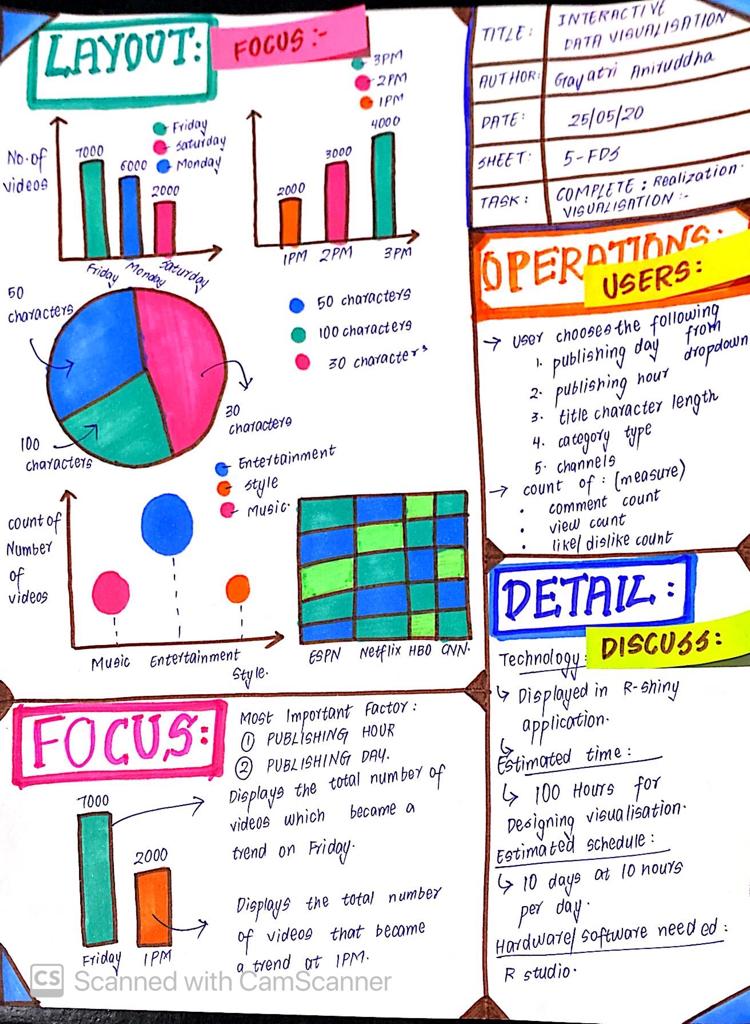 LAYOUT:
FOCUS:-
No. of
videos
7000
6000
2000
Friday
Saturday
Monday
Friday
Monday
Saturday
3PM
2PM
1PM
2000
3000
4000
1PM
2PM
3PM
50
characters
100
characters
30
characters
50 characters
100 characters
30 characters
Entertainment
Style
Music.
count of
Number
of
videos
Music
Entertainment
Style.
ESPN
Netflix
HBO
CNN.
FOCUS:
7000
2000
Friday
1PM
Most Important Factor:
① PUBLISHING HOUR
② PUBLISHING DAY.
Displays the total number of
videos which became a
trend on Friday.
Displays the total number
of videos that became
a trend at 1PM.
TITLE: INTERACTIVE
DATA VISUALISATION
AUTHOR: Gayatri Aniruddha
DATE: 25/05/20
SHEET: 5-FDS
TASK: COMPLETE: Realization
VISUALISATION:-
OPERATIONS:
USERS:
→ User chooses the following
1. publishing day from
dropdown
2. publishing hour
3. title character length
4. category type
5. channels
→ count of: (measure)
• comment count
• view count
• like/dislike count
DETAIL:
DISCUSS:
Technology:
↳ Displayed in R-shiny
application.
↳
Estimated time:
↳ 100 Hours for
Designing visualisation.
Estimated schedule:
↳ 10 days at 10 hours
per day.
Hardware/software needed:
R studio.
CS Scanned with CamScanner